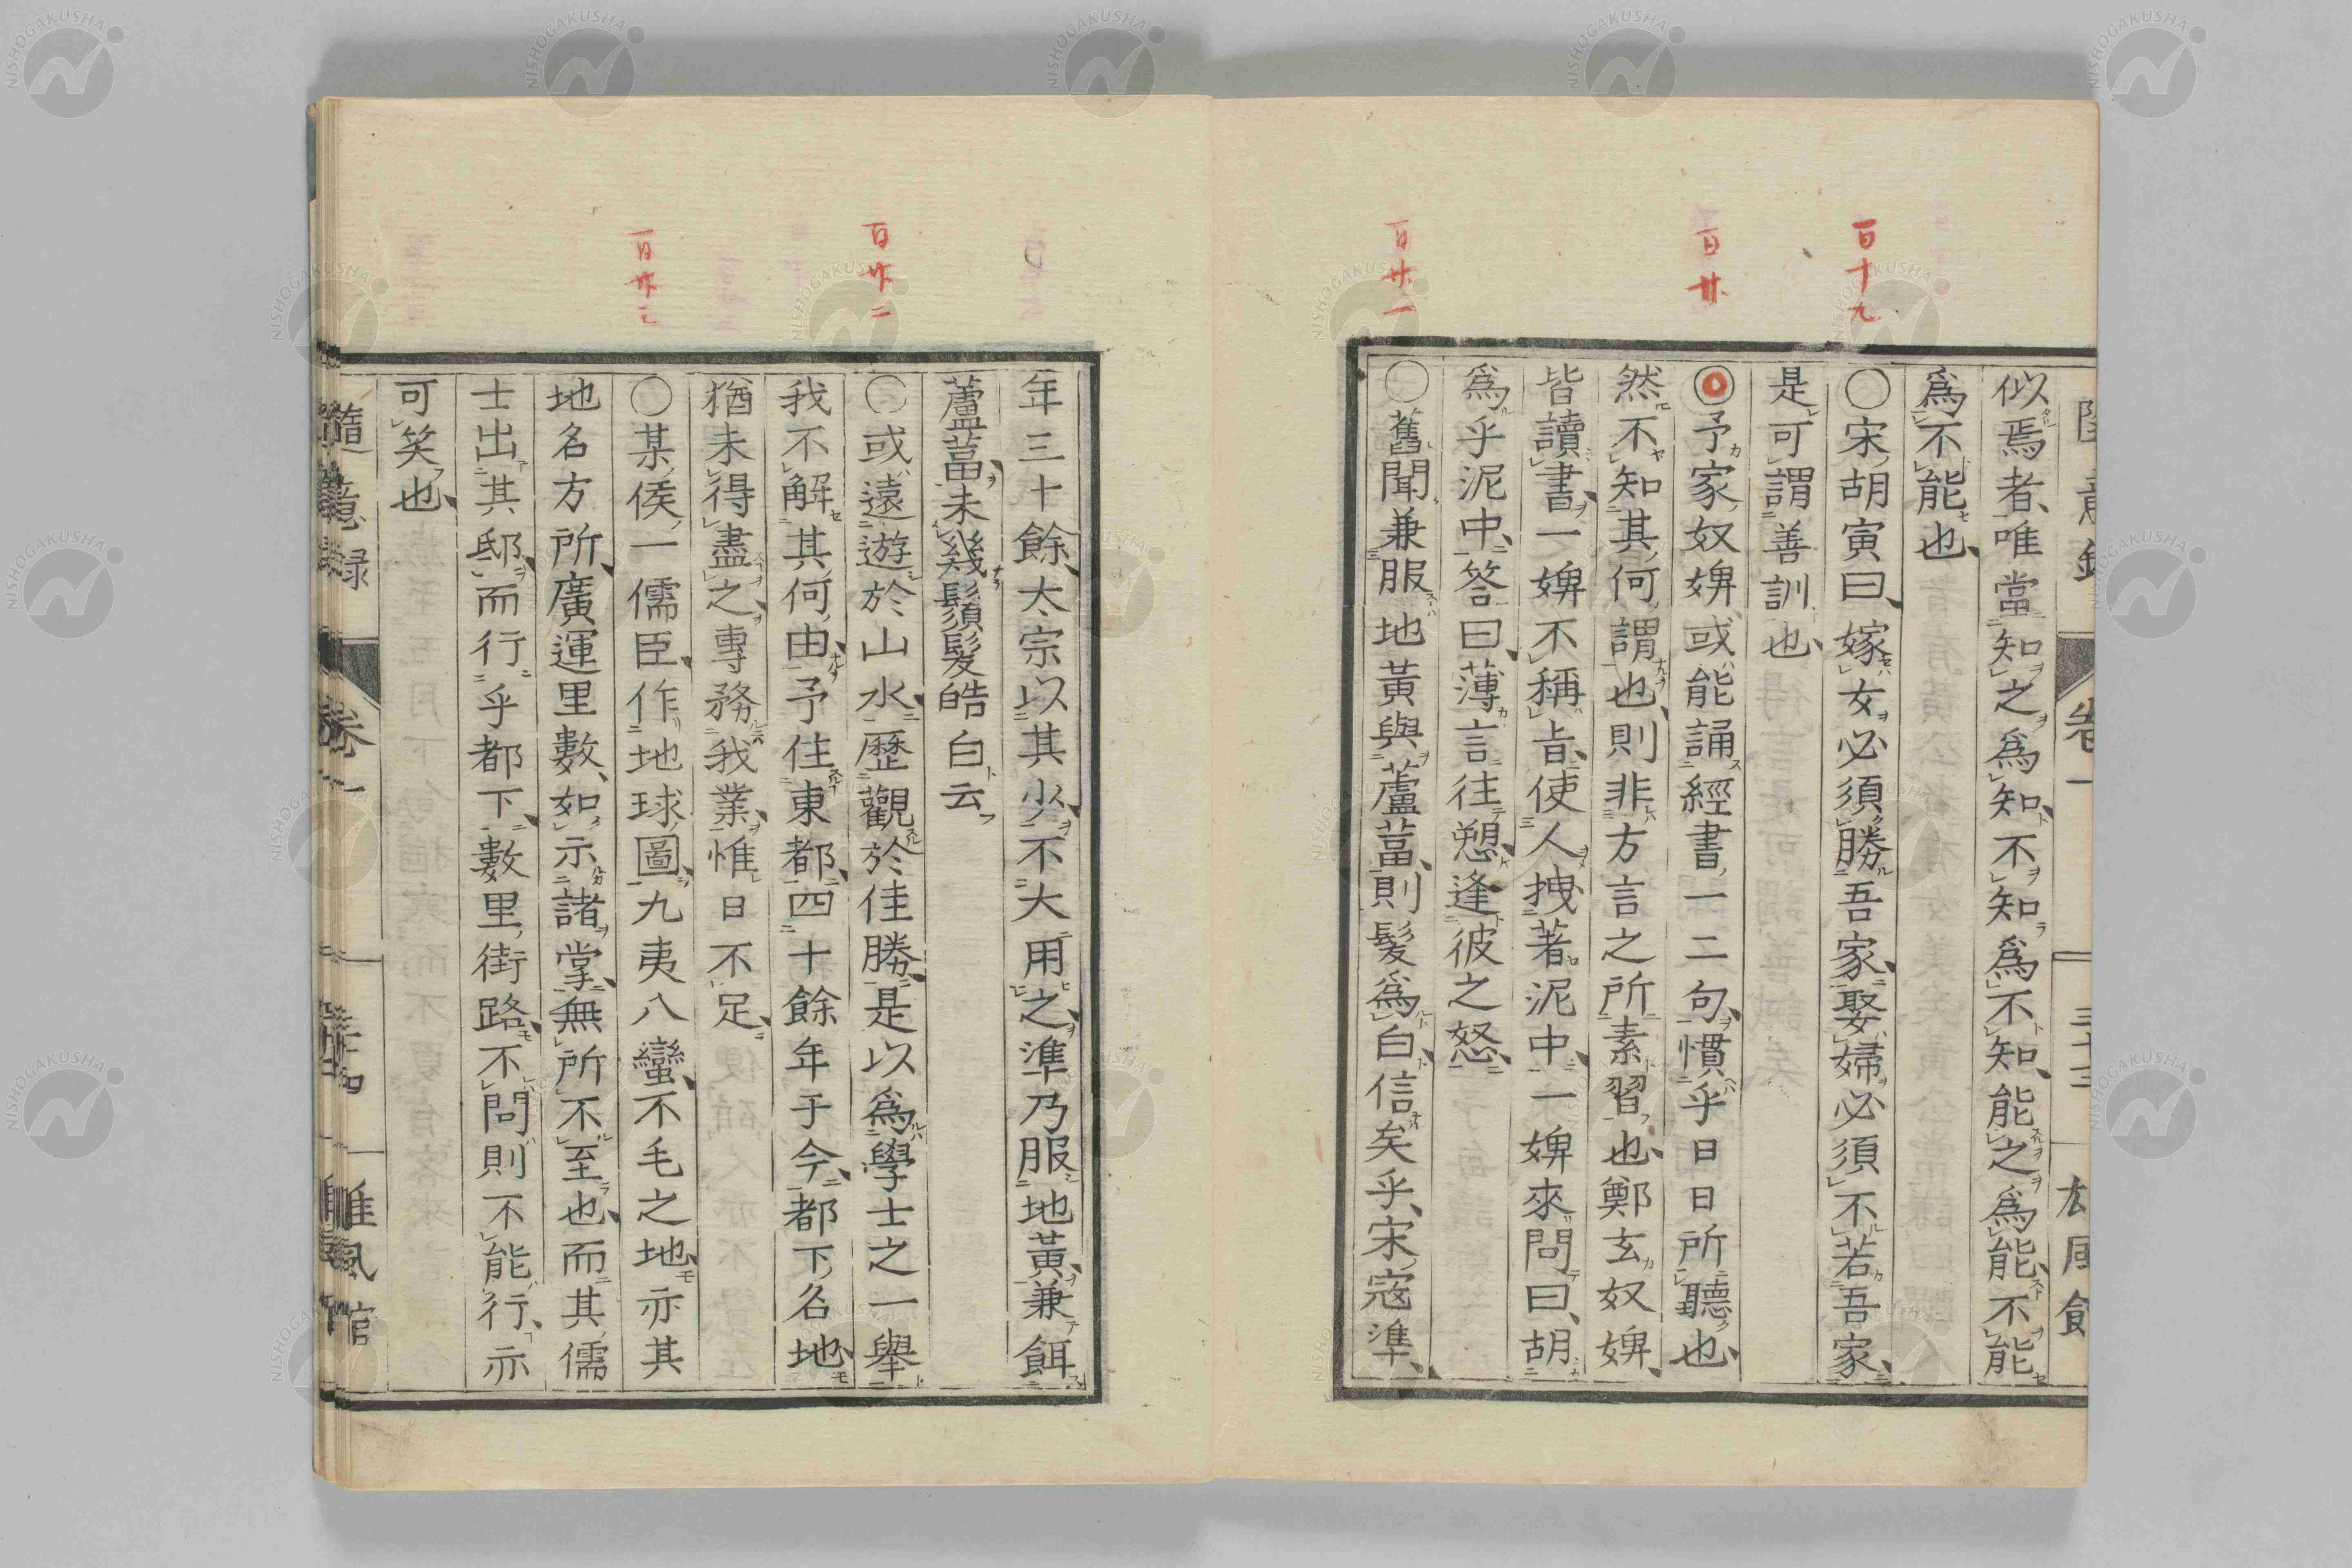 百十九
百廿
百廿一
似焉者、唯當知之爲知、不知爲不知、能之爲能、不能
爲不能也、
○宋胡寅曰、嫁女必須勝吾家、娶婦必須不若吾家、
是可謂善訓也、
○予家奴婢、或能誦經書一二句、慣乎日日所聽也、
然不知其何謂也、則非方言之所素習也、鄭玄奴婢、
皆讀書、一婢不稱旨、使人拽著泥中、一婢來問曰、胡
爲乎泥中、答曰、薄言往愬、逢彼之怒、
○舊聞兼服地黃與蘆菔、則髮爲白、信矣乎、宋寇準、
百廿二
百廿三
年三十餘、太宗以其少、不大用之、準乃服地黃、兼餌
蘆菔、未幾鬚髮皓白云
○或遠遊於山水、歷觀於佳勝、是以爲學士之一擧
我不解其何由、予住東都、四十餘年于今、都下名地、
猶未得盡之、專務我業、惟日不足、
○某侯一儒臣、作地球圖、九夷八蠻、不毛之地、亦其
地名方所、廣運里數、如示諸掌、無所不至也、而其儒
士出其邸、而行乎都下、數里街路、不問則不能行、亦
可笑也、
隨意録
卷一
雄風館